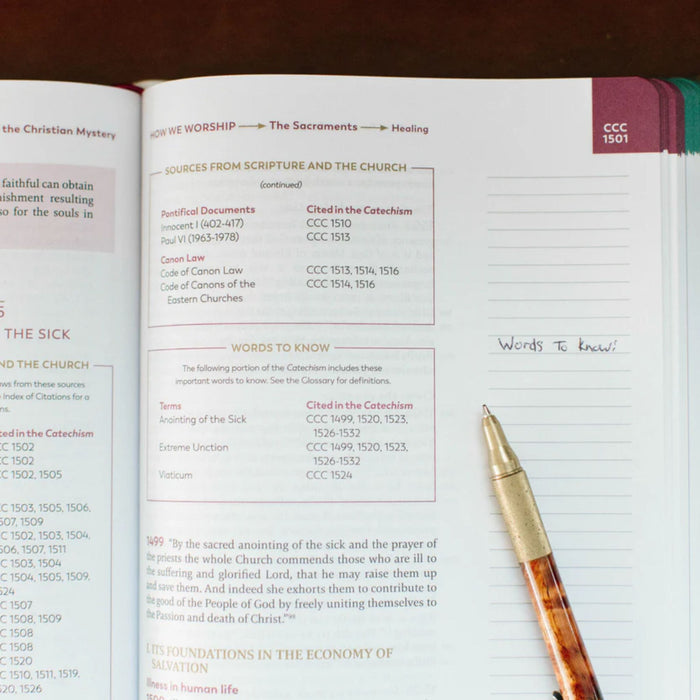 the Christian Mystery
faithful can obtain
ishment resulting
so for the souls in
THE SICK
ND THE CHURCH
ws from these sources
Index of Citations for a
ns.
ted in the Catechism
CC 1502
CC 1502
CC 1502, 1505
C 1503, 1505, 1506,
507, 1509
C 1502, 1503, 1504,
506, 1507, 1511
C 1503, 1504
C 1504, 1505, 1509,
524
C 1507
C 1508, 1509
C 1508
C 1508
C 1520
C 1510, 1511, 1519,
520, 1526
HOW WE WORSHIP → The Sacraments → Healing
CCC
1501
SOURCES FROM SCRIPTURE AND THE CHURCH
(continued)
Pontifical Documents Cited in the Catechism
Innocent I (402-417) CCC 1510
Paul VI (1963-1978) CCC 1513
Canon Law
Code of Canon Law CCC 1513, 1514, 1516
Code of Canons of the CCC 1514, 1516
Eastern Churches
WORDS TO KNOW
The following portion of the Catechism includes these
important words to know. See the Glossary for definitions.
Terms Cited in the Catechism
Anointing of the Sick CCC 1499, 1520, 1523,
1526-1532
Extreme Unction CCC 1499, 1520, 1523,
1526-1532
Viaticum CCC 1524
1499 "By the sacred anointing of the sick and the prayer of
the priests the whole Church commends those who are ill to
the suffering and glorified Lord, that he may raise them up
and save them. And indeed she exhorts them to contribute to
the good of the People of God by freely uniting themselves to
the Passion and death of Christ."⁹⁸
I. ITS FOUNDATIONS IN THE ECONOMY OF
SALVATION
Illness in human life
Words To Know: